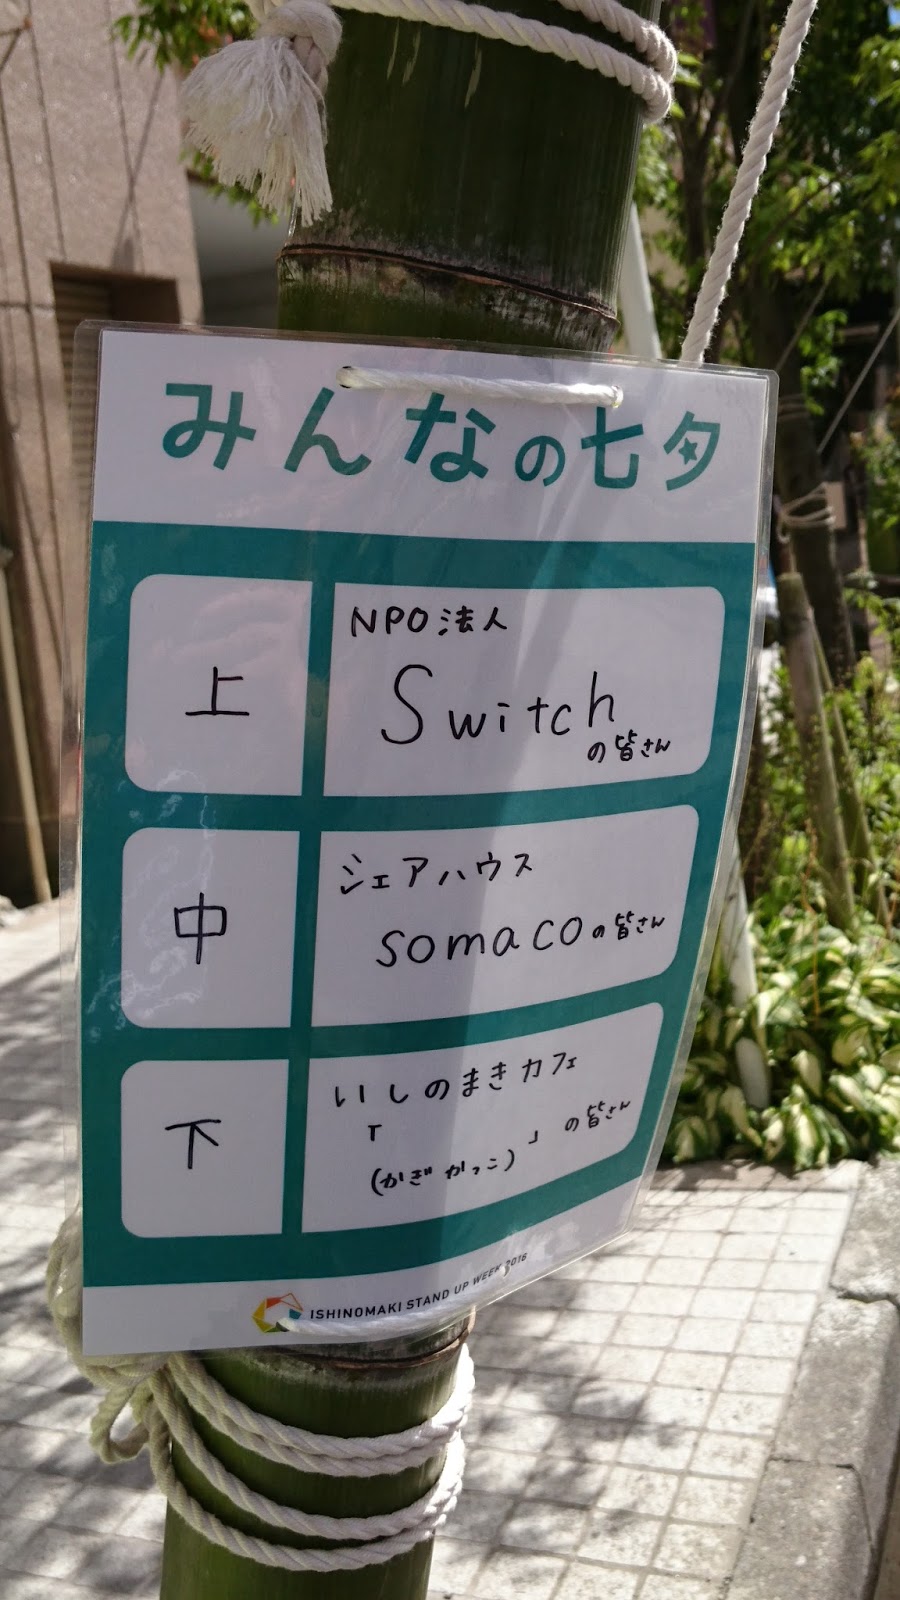 みんなの七夕
上
NPO法人
Switch
の皆さん
中
シェアハウス
somacoの皆さん
下
いしのまきカフェ
「 」の皆さん
(かぎかっこ)
ISHINOMAKI STAND UP WEEK 2016